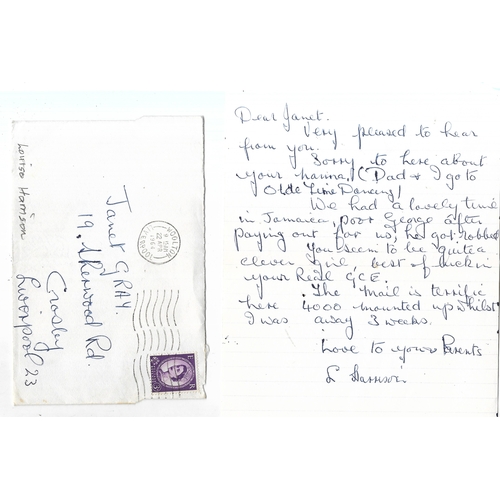 Louise Harrison
Janet GRAY.
19, SHERWOOD Rd.
Crosby
Liverpool 23
Dear Janet.
Very pleased to hear
from you.
Sorry to here about
your nanna, (Dad & I go to
Olde Time Dancing)
We had a lovely time
in Jamaica, poor George after
paying out for us, he got robbed
You seem to be quite a
clever girl best of luck in
your Real GCE.
The Mail is terrific
here 4000 mounted up whilst
I was away 3 weeks.
Love to your Parents
L Harrison